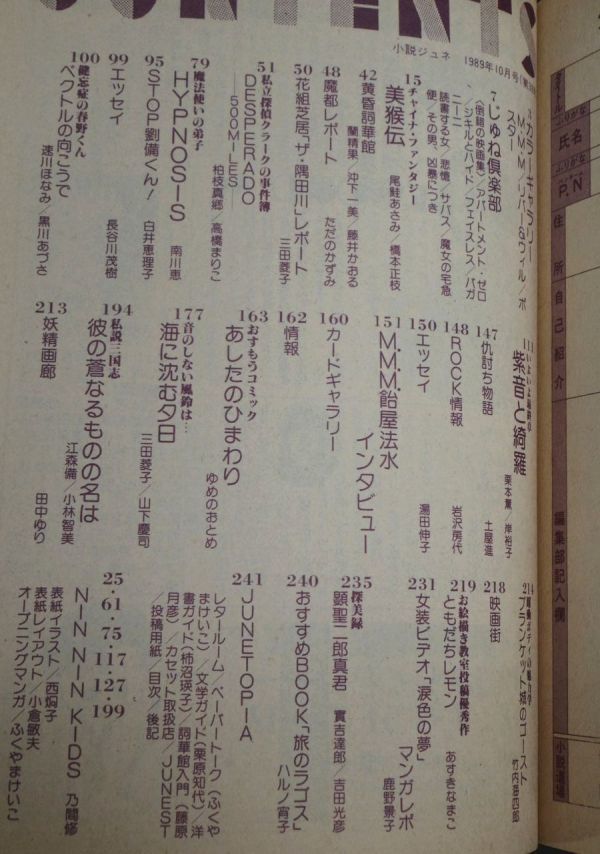 CONTENTS
小説ジュネ 1989年10月号
カラーギャラリー
M.M.M./リバー&ウィル/ポスター
7 じゅね倶楽部
〈倒錯の映画集〉アパートメント・ゼロ/ジキルとハイド/フェイスレス/バガニーニ
読書する女/悲憶/サバス/魔女の宅急便/その男、凶暴につき
15 チャイナ・ファンタジー
美猴伝
尾鮭あさみ/橋本正枝
42 黄昏詞華館
蘭精果/沖下一美/藤井かおる
48 魔都レポート
ただのかずみ
50 花組芝居「ザ・隅田川」レポート
三田菱子
51 私立探偵クラークの事件簿
DESPERADO
—500MILES—
柏枝真郷/高橋まりこ
79 魔法使いの弟子
HYPNOSIS
南川恵
95 STOP劉備くん!
白井恵理子
99 エッセイ
長谷川茂樹
100 健忘症の春野くん
ベクトルの向こうで
速川ほなみ/黒川あづさ
紫音と綺羅
栗本薫/岸裕子
147 仇討ち物語
土屋進
148 ROCK情報
岩沢房代
150 エッセイ
湯田伸子
151 M.M.M.飴屋法水
インタビュー
160 カードギャラリー
162 情報
163 おすもうコミック
あしたのひまわり
ゆめのおとめ
177 音のしない風鈴は…
海に沈む夕日
三田菱子/山下慶司
194 私説三国志
彼の蒼なるものの名は
江森備/小林智美
213 妖精画廊
田中ゆり
214
プランケット城のゴースト
竹内浩四郎
218 映画街
219 お絵描き教室投稿優秀作
ともだちレモン
あずきなまこ
231 女装ビデオ「涙色の夢」
マンガレポ
鹿野景子
235 探美録
顕聖二郎真君
實吉達郎/吉田光彦
240 おすすめBOOK「旅のラゴス」
ハルノ宵子
241 JUNETOPIA
レタールーム/ペーパートーク(ふくや
まけいこ)/文学ガイド(栗原知代)/洋
書ガイド(柿沼瑛子)/詞華館入門(藤原
月彦)/カセット取扱店/JUNEST
/投稿用紙/目次/後記
25・61・75・117・127・199
NIN NIN KIDS 乃間修
表紙イラスト/西炯子
表紙レイアウト/小倉敏夫
オープニングマンガ/ふくやまけいこ
ふりがな
氏名
ふりがな
P.N
住所
自己紹介
編集部記入欄
小説道場